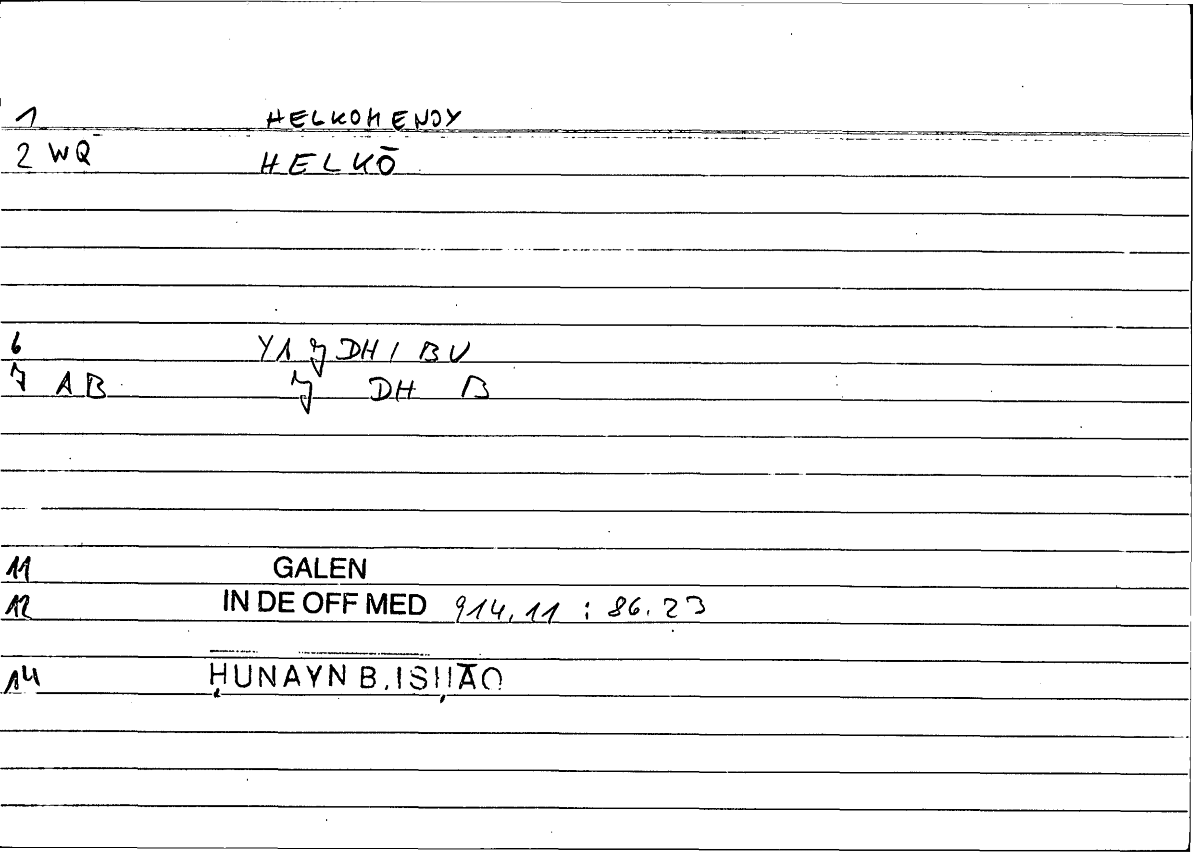 1 HELKOMENOY
2 WQ̄ HELKŌ
6 Y1 ʒ DH / BU
7 AB ʒ DH B
11 GALEN
12 IN DE OFF MED 914,11 : 86.23
14 ḤUNAYN B. ISḤĀQ